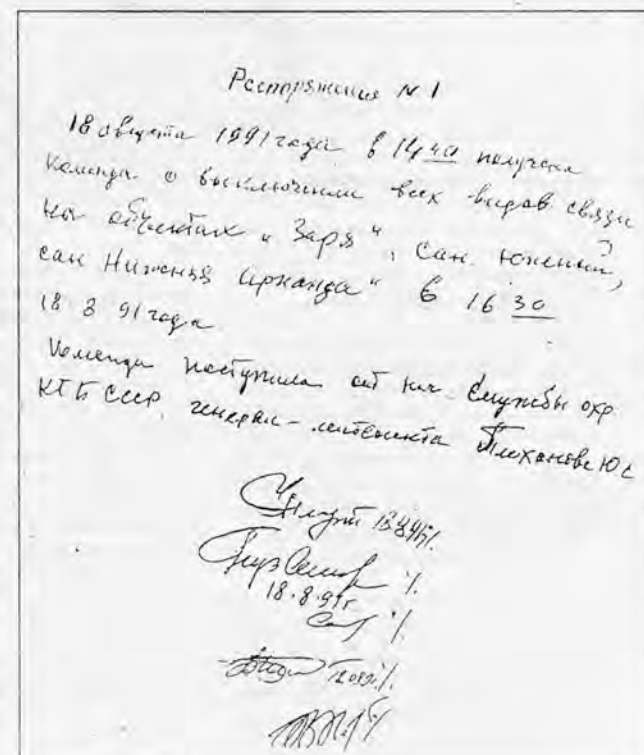 Распоряжение №1
18 августа 1991 года в 14 40 получена
команда о выключении всех видов связи
на объектах „Заря“, сан. Южный,
сан Нижняя Ореанда“ в 16 30
18 8 91 года
Команда поступила от нач. Службы охр
КГБ СССР, генерал-лейтенанта Плеханова Ю С
18.8.91г